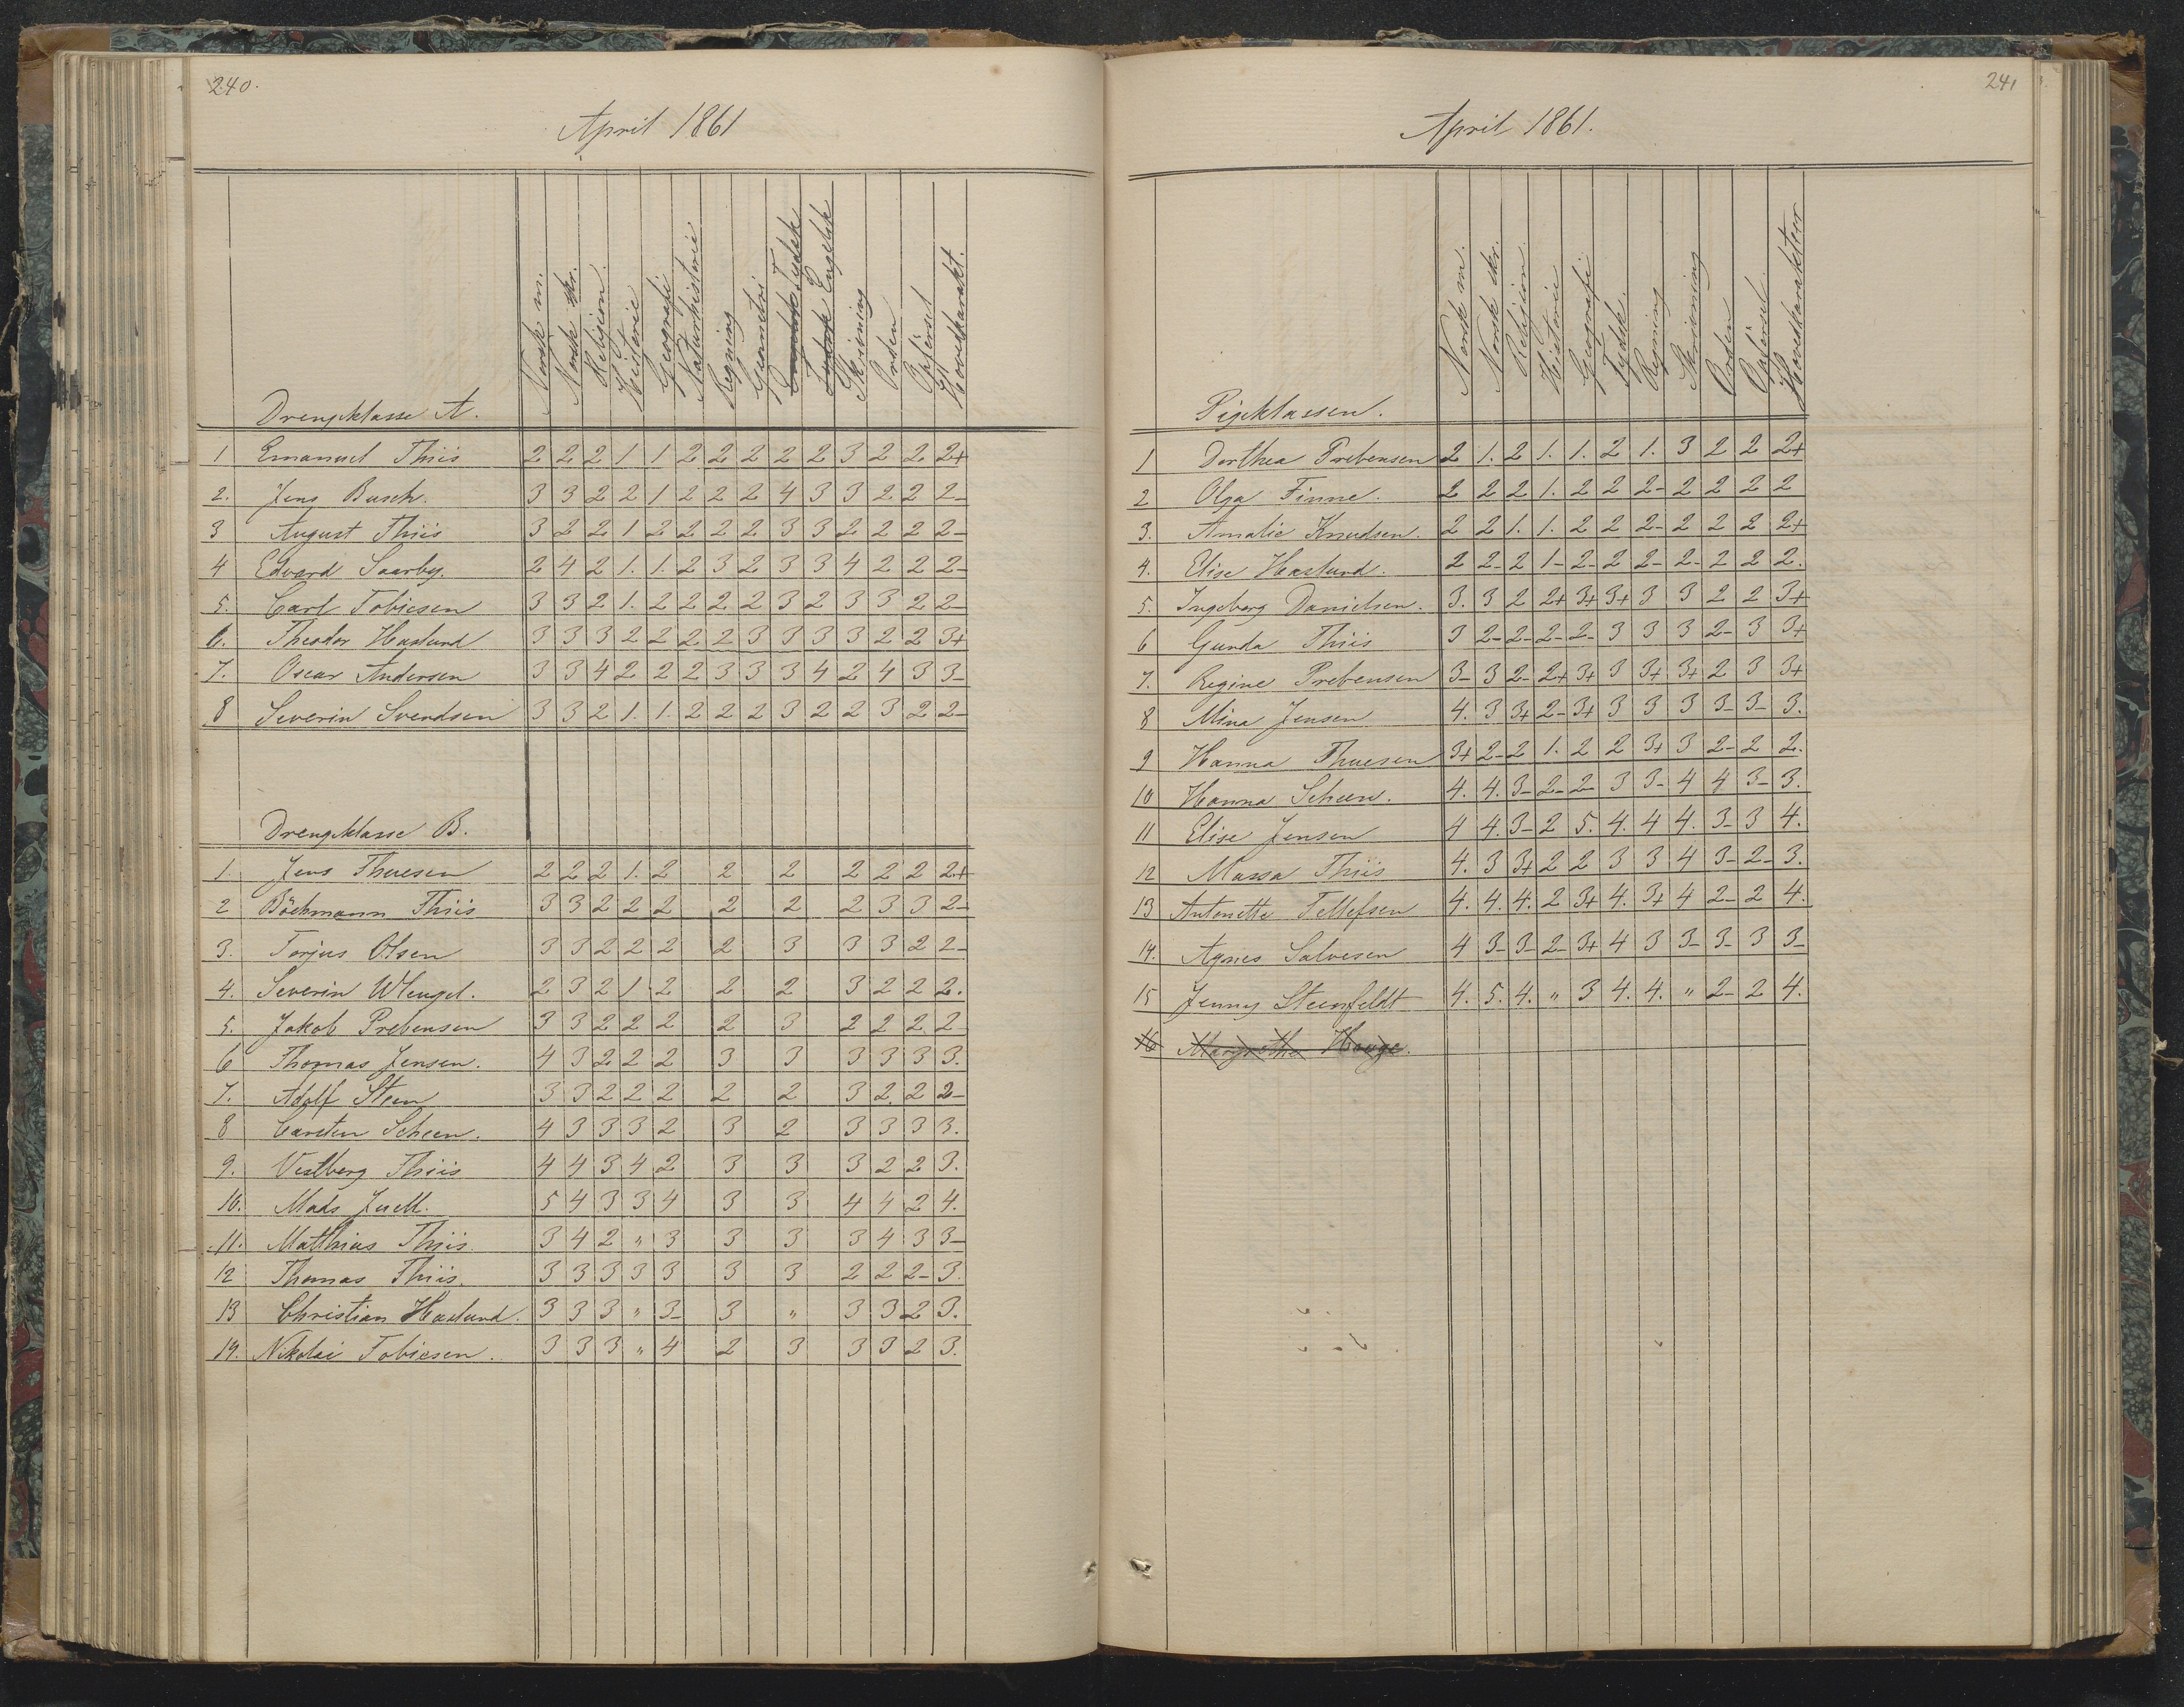 240.
April 1861
Norsk m. Norsk skr. Religion. Historie Geografi Naturhistorie Regning Geometri Engelsk Tydsk Tydsk Engelsk Skrivning Orden Opførsel Hovedkarakt.
Drengeklasse A.
1 Emanuel Thiis 2 2 2 1 1 2 2 2 2 2 3 2 2 2+
2. Jens Busch. 3 3 2 2 1 2 2 2 4 3 3 2 2 2-
3 August Thiis 3 2 2 1 2 2 2 2 3 3 2 2 2 2-
4 Edvard Saarby. 2 4 2 1. 1. 2 3 2 3 3 4 2 2 2-
5. Carl Tobiesen 3 3 2 1. 2 2 2 2 3 2 3 3 2 2-
6. Theodor Haslund 3 3 3 2 2 2 2 3 3 3 3 2 2 3+
7. Oscar Andersen 3 3 4 2 2 2 3 3 3 4 2 4 3 3-
8 Severin Svendsen 3 3 2 1. 1. 2 2 2 3 2 2 3 2 2-
Drengeklasse B.
1. Jens Thuesen 2 2 2 1. 2 2 2 2 2 2 2+
2 Böckmann Thiis 3 3 2 2 2 2 2 2 3 3 2-
3. Torjus Olsen 3 3 2 2 2 2 3 3 3 2 2-
4. Severin Wleugel. 2 3 2 1 2 2 2 3 2 2 2.
5. Jakob Prebensen 3 3 2 2 2 2 3 2 2 2 2
6 Thomas Jensen. 4 3 2 2 2 3 3 3 3 3 3.
7. Adolf Steen 3 3 2 2 2 2 2 3 2 2 2-
8 Carsten Scheen. 4 3 3 3 2 3 2 3 3 3 3.
9. Vestberg Thiis 4 4 3 4 2 3 3 3 2 2 3.
10. Mads Juell. 5 4 3 3 4 3 3 4 4 2 4.
11. Matthias Thiis 3 4 2 " 3 3 3 3 4 3 3-
12 Thomas Thiis. 3 3 3 3 3 3 3 2 2 2- 3.
13 Christian Haslund. 3 3 3 " 3- 3 " 3 3 2 3.
14. Nikolai Tobiesen. 3 3 3 " 4 2 3 3 3 2 3.
241
April 1861.
Norsk m. Norsk skr. Religion. Historie Geografi Tydsk. Regning Skrivning Orden Opførsel Hovedkarakteer
Pigeklassen.
1 Dorthea Prebensen 2 1. 2 1. 1. 2 1. 3 2 2 2+
2 Olga Finne. 2 2 2 1. 2 2 2- 2 2 2 2
3. Amalie Knudsen. 2 2 1. 1. 2 2 2- 2 2 2 2+
4. Elise Haslund. 2 2- 2 1- 2- 2 2- 2- 2 2 2.
5. Ingeborg Danielsen. 3. 3 2 2+ 3+ 3+ 3 3 2 2 3+
6 Gunda Thiis 3 2- 2- 2- 2- 3 3 3 2- 3 3+
7. Regine Prebensen 3- 3 2- 2+ 3+ 3 3+ 3+ 2 3 3+
8 Mina Jensen 4. 3 3+ 2- 3+ 3 3 3 3- 3- 3.
9 Hanna Thuesen 3+ 2- 2 1. 2 2 3+ 3 2- 2 2.
10 Hanna Scheen. 4. 4. 3- 2- 2- 3 3- 4 4 3- 3.
11 Elise Jensen 4 4. 3- 2 5. 4. 4 4. 3- 3 4.
12 Massa Thiis 4. 3 3+ 2 2 3 3 4 3- 2- 3.
13 Antonette Tellefsen 4. 4. 4. 2 3+ 4. 3+ 4 2- 2 4.
14. Agnes Salvesen 4 3- 3- 2- 3+ 4 3 3- 3- 3 3-
15 Jenny Steenfeldt 4. 5. 4. " 3 4. 4. " 2- 2 4.
16 Margrethe Hauge.